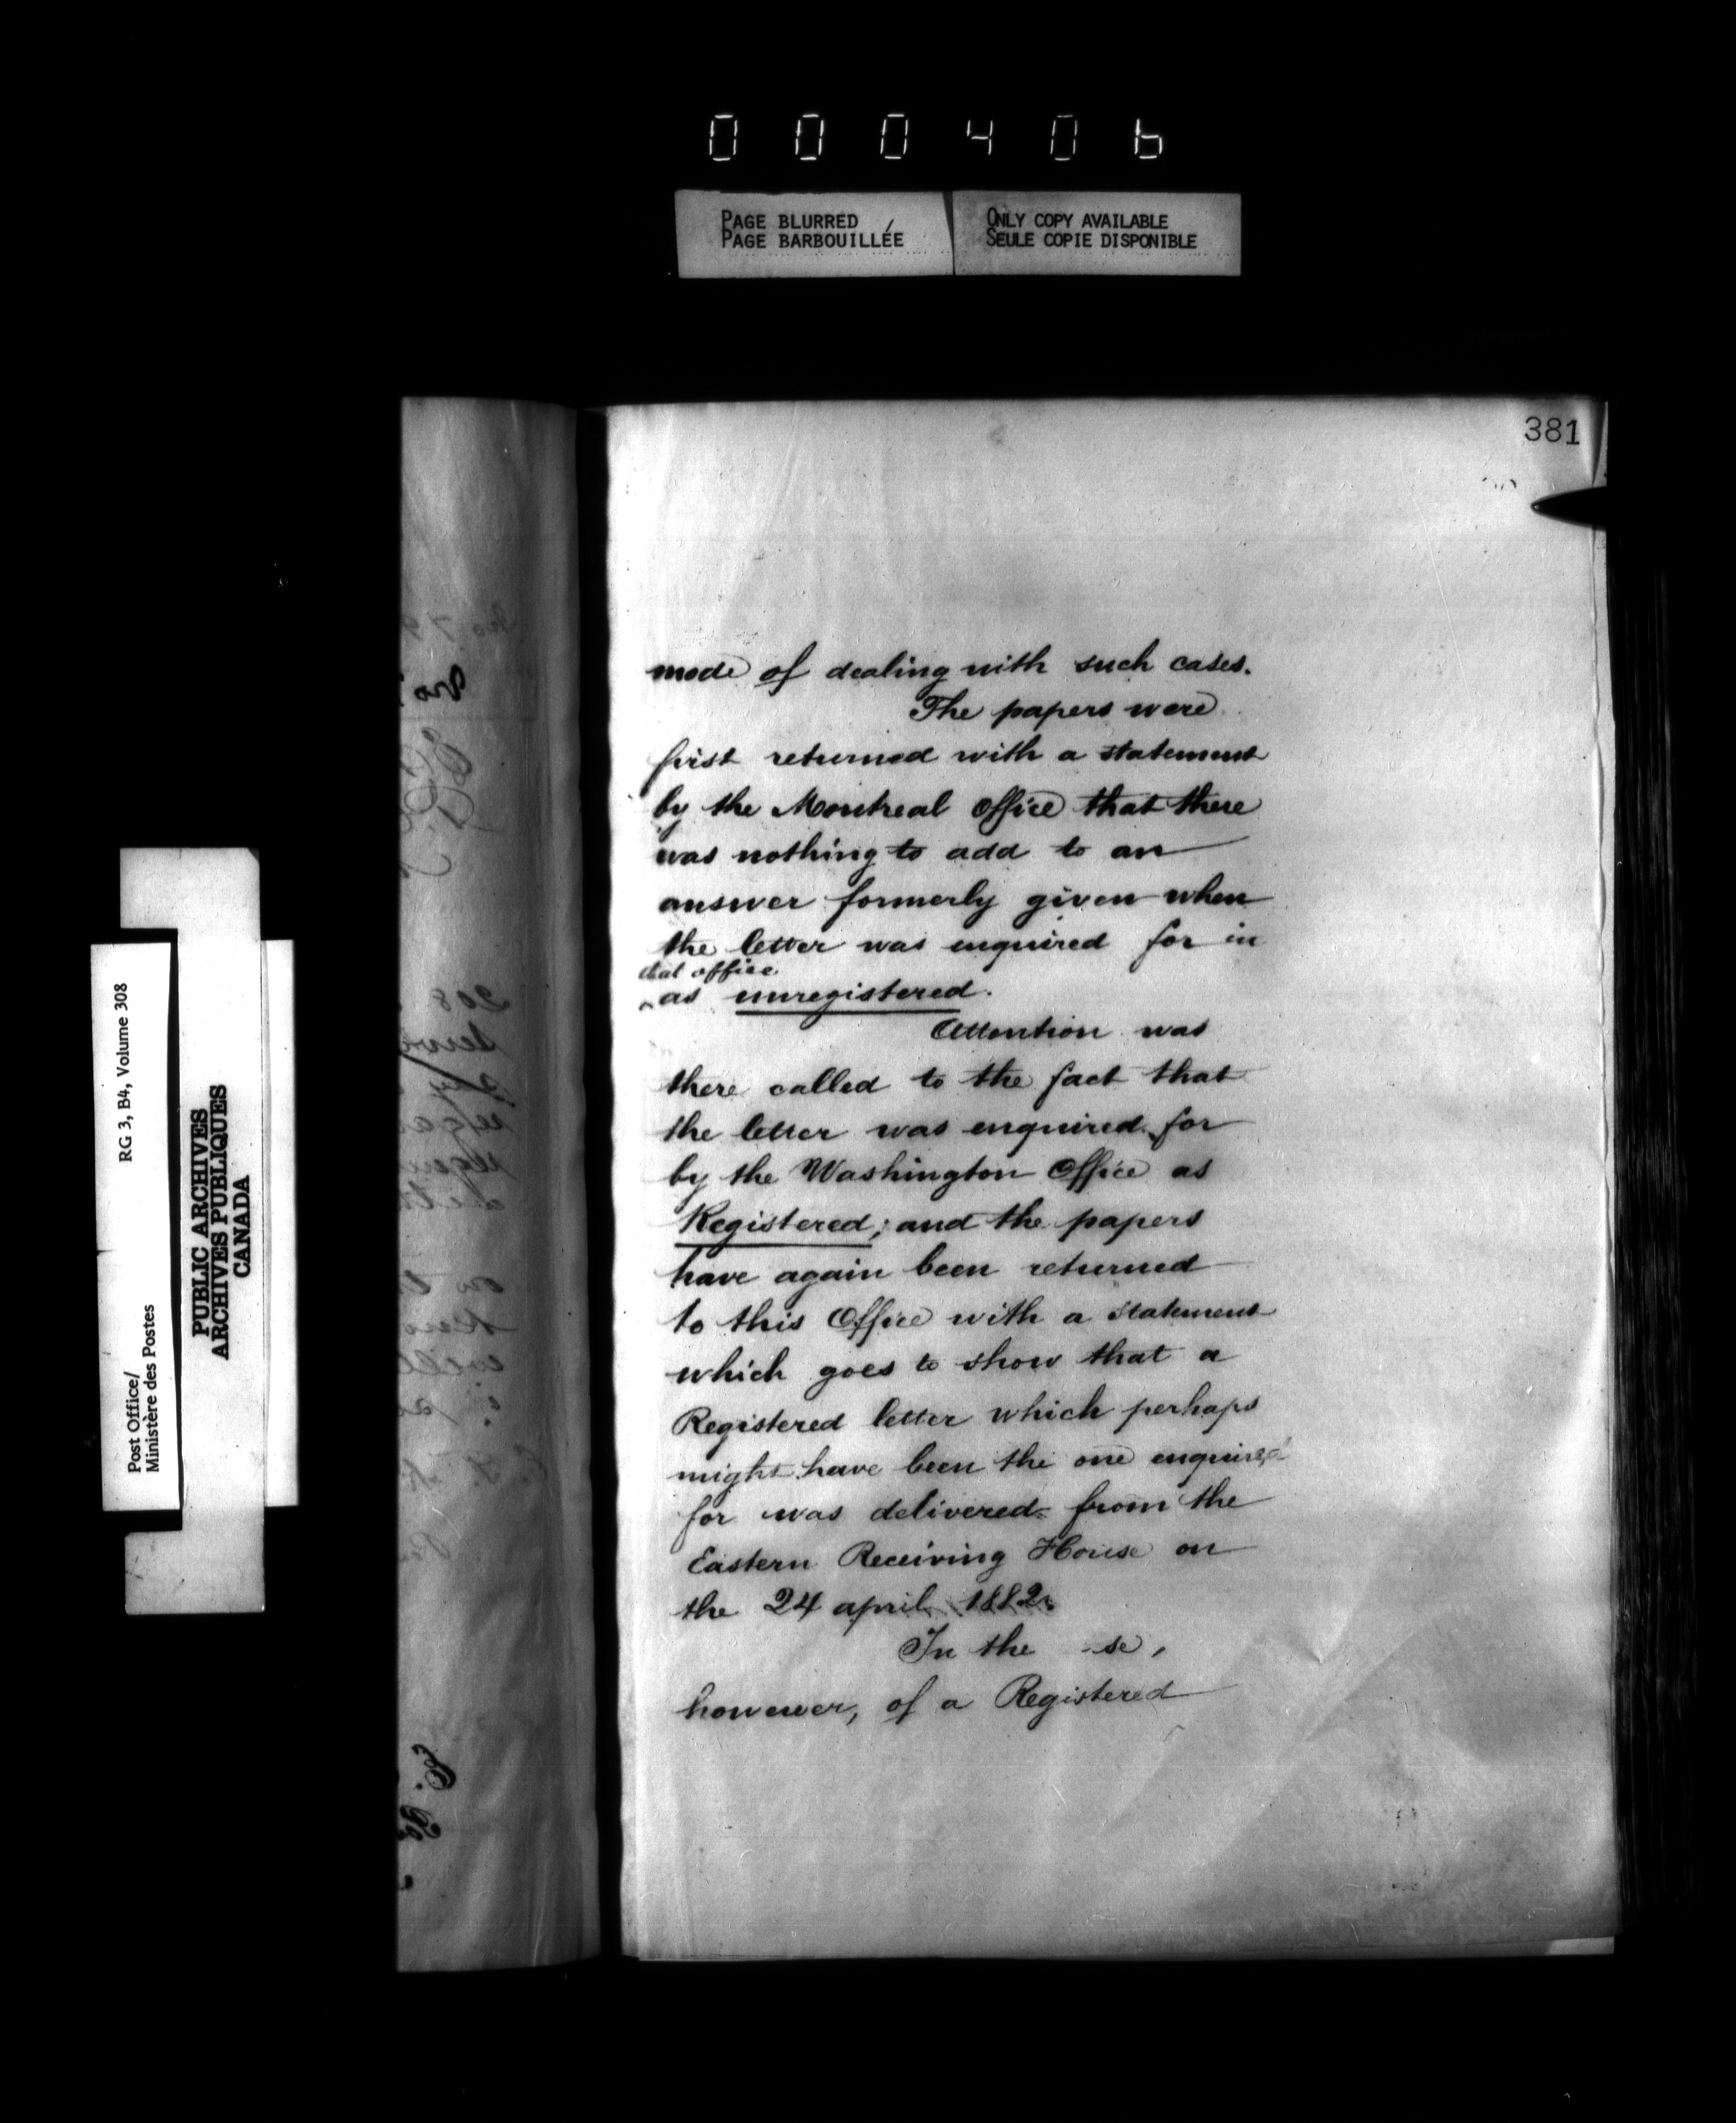 000406
PAGE BLURRED
PAGE BARBOUILLÉE
ONLY COPY AVAILABLE
SEULE COPIE DISPONIBLE
381
mode of dealing with such cases.
The papers were
first returned with a statement
by the Montreal Office that there
was nothing to add to an
answer formerly given when
the letter was enquired for in
that office
^ as unregistered.
Attention was
there called to the fact that
the letter was enquired for
by the Washington Office as
Registered; and the papers
have again been returned
to this Office with a statement
which goes to show that a
Registered letter which perhaps
might have been the one enquired
for was delivered from the
Eastern Receiving House on
the 24 april 1882.
In the se,
however, of a Registered
Post Office/
Ministère des Postes
RG 3, B4, Volume 308
PUBLIC ARCHIVES
ARCHIVES PUBLIQUES
CANADA